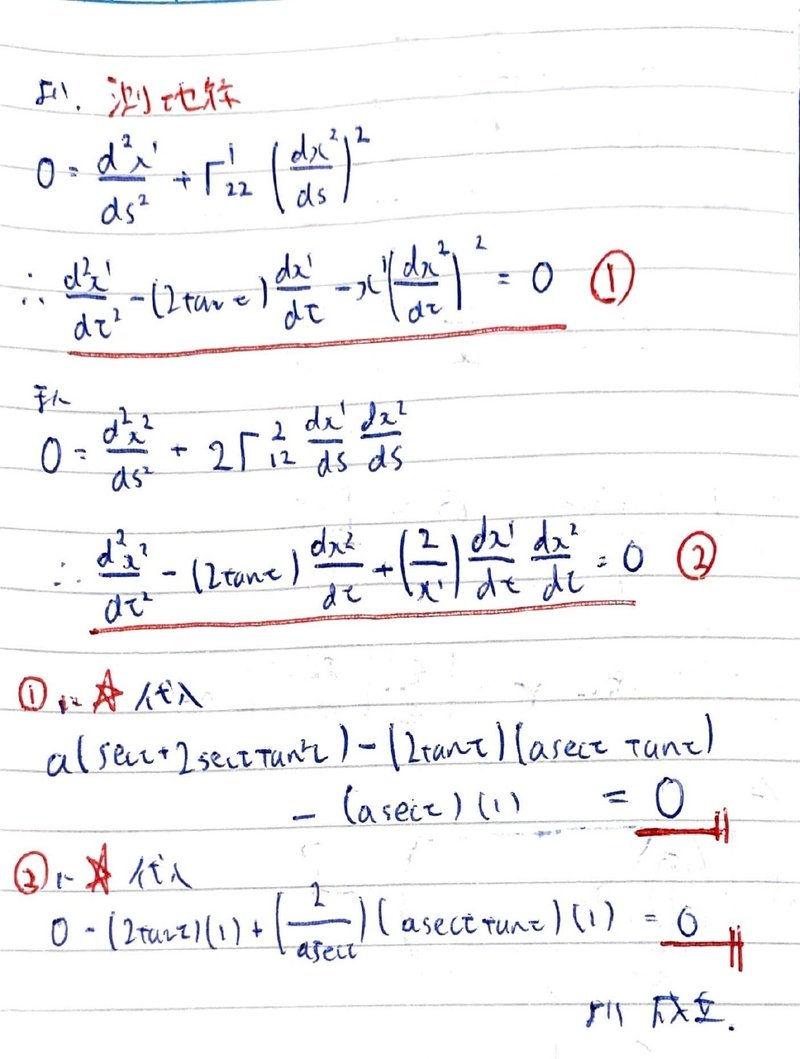 より、測地線
0 = d²x¹/ds² + Γ¹₂₂ (dx²/ds)²
∴ d²x¹/dτ² - (2tanτ) dx¹/dτ - x¹(dx²/dτ)² = 0 ①
0 = d²x²/ds² + 2Γ²₁₂ dx¹/ds dx²/ds
∴ d²x²/dτ² - (2tanτ) dx²/dτ + (2/x¹) dx¹/dτ dx²/dτ = 0 ②
①に☆代入
a(secτ+2secτtan²τ) - (2tanτ)(asecτ tanτ)
- (asecτ)(1) = 0
②に☆代入
0 - (2tanτ)(1) + (2/asecτ)(asecτtanτ)(1) = 0
より成立.